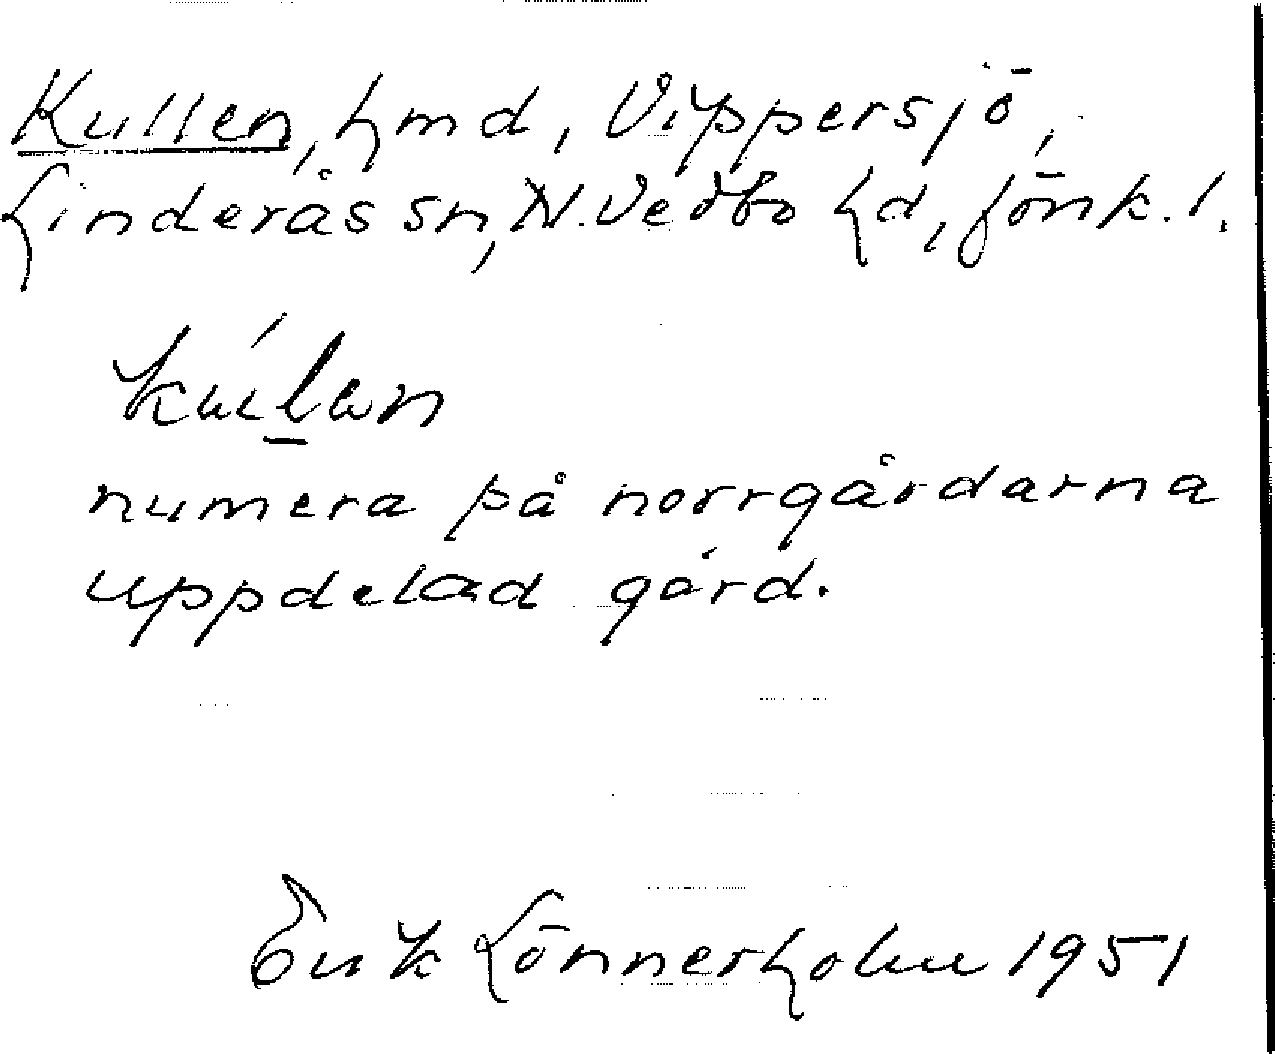 Kullen, hmd, Vippersjö,
Linderås sn, N. Vedbo hd, Jönk. l.
kúlan
numera på norrgårdarna
uppdelad gård.
Erik Lönnerholm 1951